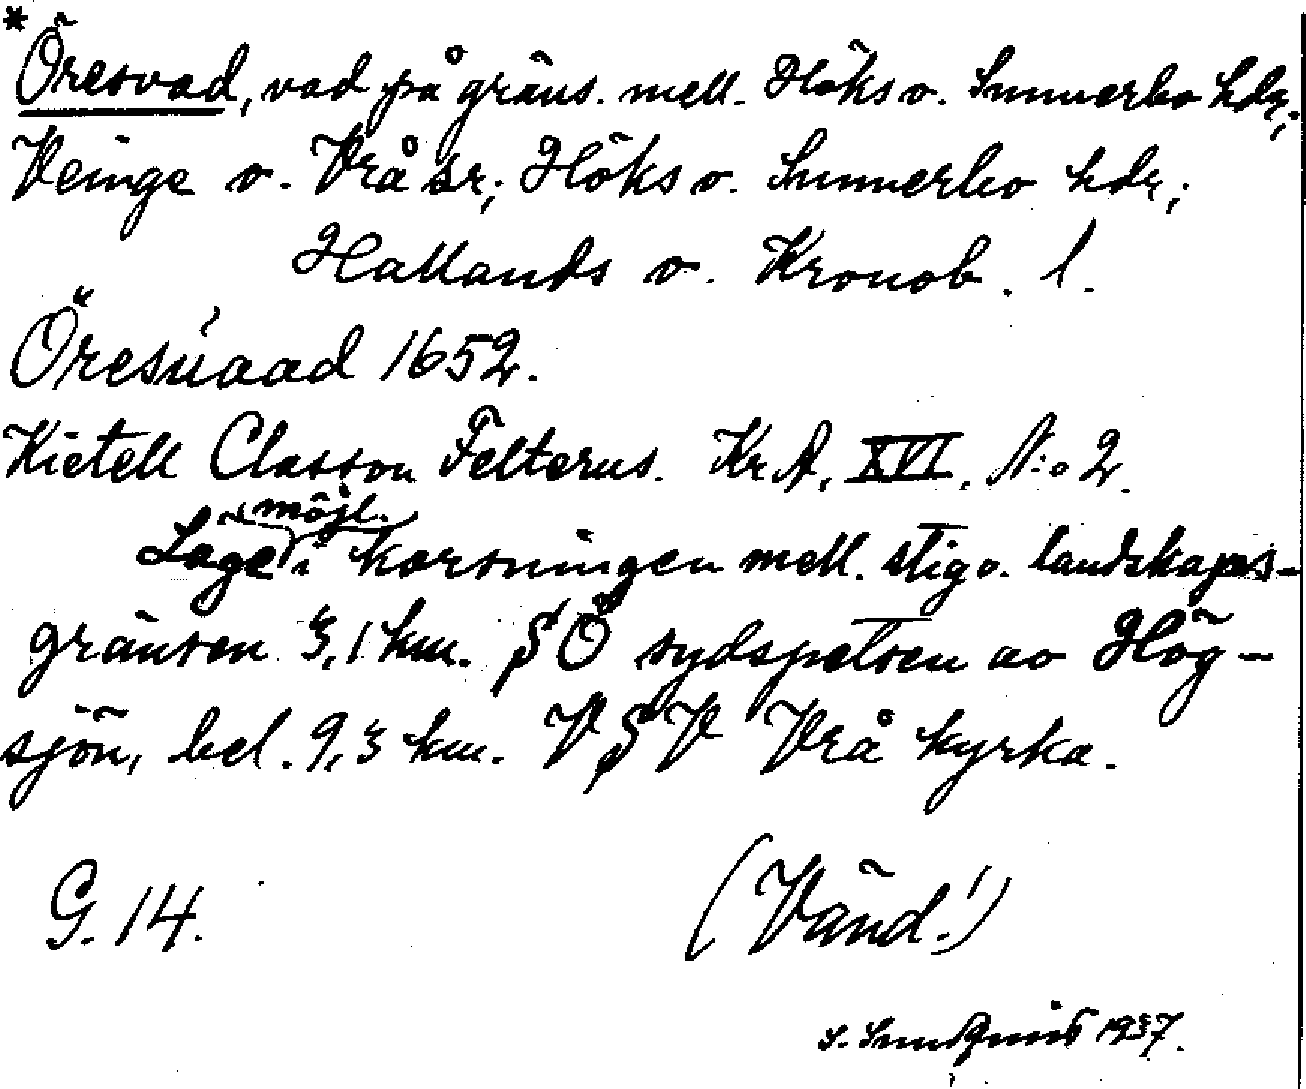 *Öresvad, vad på gräns. mell. Höks o. Sunnerbo hdr,
Veinge o. Vrå sr; Höks o. Sunnerbo hdr,;
Hallands o. Kronob. l.
Öresúaad 1652.
Kietell Classon Felterus. Kr.A. XVI. N:o 2.
möjl.
Läge i korsningen mell. stig o. landskaps-
gränsen 3,1 km. SÖ sydspetsen av Hög-
sjön, bel. 9,3 km. VSV Vrå kyrka.
G. 14. (Vänd!)
S. Sundquist 1937.